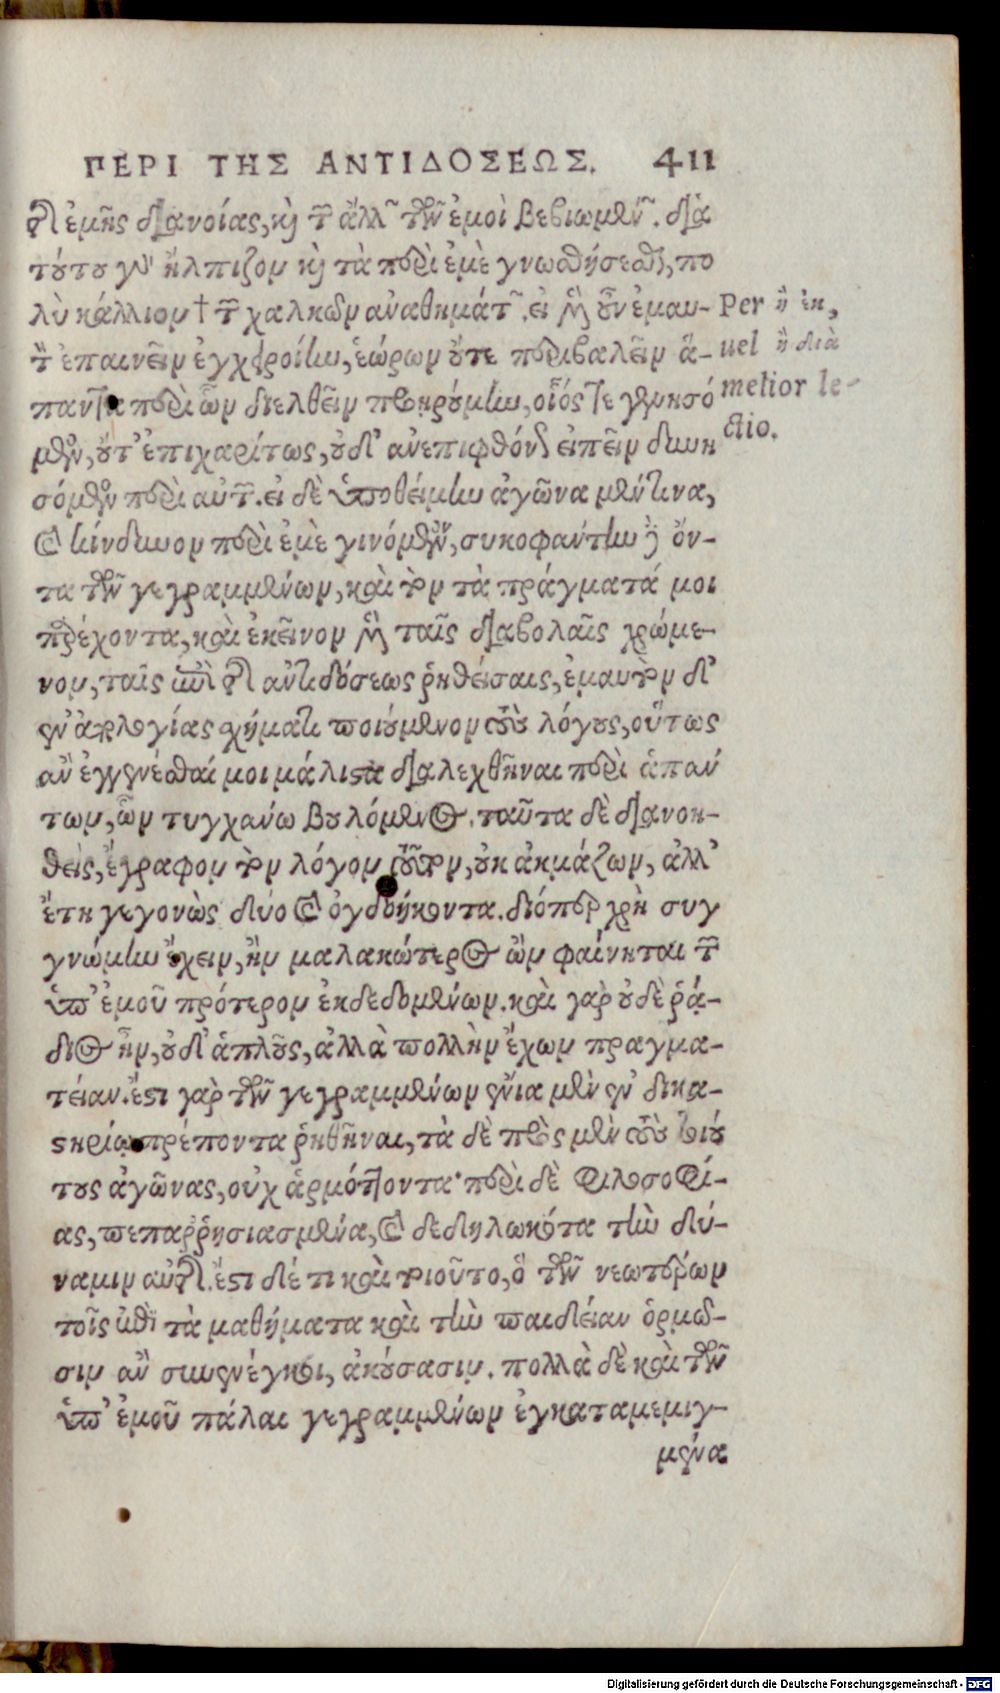 ΠΕΡΙ ΤΗΣ ΑΝΤΙΔΟΣΕΩΣ. 411
τῆς ἐμῆς διανοίας, καὶ τῶν ἄλλων τῶν ἐμοὶ βεβιωμένων. διὰ
τούτου γὰρ ἤλπιζον καὶ τὰ περὶ ἐμὲ γνωσθήσεσθαι, πο
λὺ κάλλιον † τῶν χαλκῶν ἀναθημάτων. εἰ μὲν οὖν ἐμαυ-
τὸν ἐπαινεῖν ἐγχειροίην, ἑώρων οὔτε περιβαλεῖν ἅ-
παντα περὶ ὧν διελθεῖν προῃρούμην, οἷός τε γενησό
μενος, οὔτ' ἐπιχαρίτως, οὐδ' ἀνεπιφθόνως εἰπεῖν δυνη
σόμενος περὶ αὐτῶν. εἰ δὲ ὑποθείμην ἀγῶνα μέν τινα,
καὶ κίνδυνον περὶ ἐμὲ γινόμενον, συκοφάντην δὲ ὄν-
τα τὸν γεγραμμένων, καὶ τὸν τὰ πράγματά μοι
παρέχοντα, καὶ ἐκεῖνον μὲν ταῖς διαβολαῖς χρώμε-
νον, ταῖς ἐπὶ τῆς ἀντιδόσεως ῥηθείσαις, ἐμαυτὸν δ'
ἐν ἀπολογίας σχήματι ποιούμενον τοὺς λόγους, οὕτως
ἂν ἐγγενέσθαι μοι μάλιστα διαλεχθῆναι περὶ ἁπάν
των, ὧν τυγχάνω βουλόμενος. ταῦτα δὲ διανοη-
θεὶς, ἔγραφον τὸν λόγον τοῦτον, οὐκ ἀκμάζων, ἀλλ'
ἔτη γεγονὼς δύο καὶ ὀγδοήκοντα. διόπερ χρὴ συγ
γνώμην ἔχειν, ἢν μαλακώτερος ὢν φαίνηται τῶν
ὑπ' ἐμοῦ πρότερον ἐκδεδομένων. καὶ γὰρ οὐδὲ ῥᾴ-
διος ἦν, οὐδ' ἁπλοῦς, ἀλλὰ πολλὴν ἔχων πραγμα-
τείαν. ἔστι γὰρ τῶν γεγραμμένων ἔνια μὲν ἐν δικα-
στηρίῳ πρέποντα ῥηθῆναι, τὰ δὲ πρὸς μὲν τοὺς τοιού
τους ἀγῶνας, οὐχ ἁρμόττοντα· περὶ δὲ φιλοσοφί-
ας, πεπαρρησιασμένα, καὶ δεδηλωκότα τὴν δύ-
ναμιν αὐτῆς. ἔστι δέ τι καὶ τοιοῦτο, ὃ τῶν νεωτέρων
τοῖς ἐπὶ τὰ μαθήματα καὶ τὴν παιδείαν ὁρμῶ-
σιν ἂν συνενέγκοι, ἀκούσασιν. πολλὰ δὲ καὶ τῶν
ὑπ' ἐμοῦ πάλαι γεγραμμένων ἐγκαταμεμιγ-
μένα
Per ἢ ἐκ,
uel ἢ διὰ
melior le-
ctio.
Digitalisierung gefördert durch die Deutsche Forschungsgemeinschaft - DFG